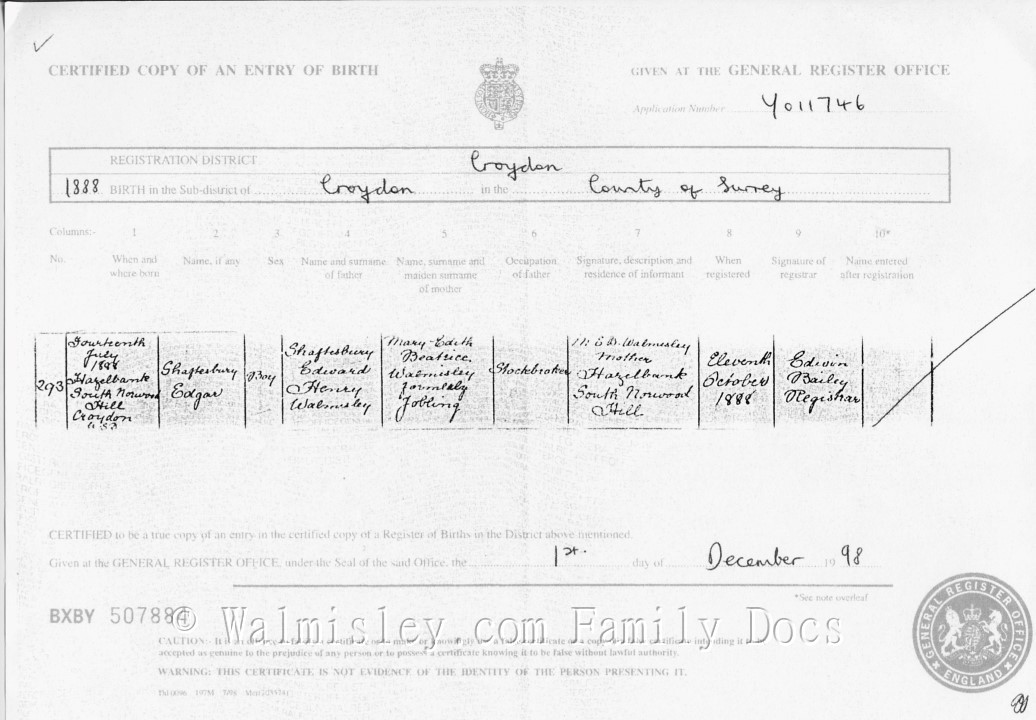 CERTIFIED COPY OF AN ENTRY OF BIRTH
GIVEN AT THE GENERAL REGISTER OFFICE
Application Number Y011746
REGISTRATION DISTRICT Croydon
1888 BIRTH in the Sub-district of Croydon in the County of Surrey
Columns:- 1 2 3 4 5 6 7 8 9 10*
No. When and where born Name, if any Sex Name and surname of father Name, surname and maiden surname of mother Occupation of father Signature, description and residence of informant When registered Signature of registrar Name entered after registration
293
Fourteenth
July
1888
Hazelbank
South Norwood
Hill
Croydon
Shaftesbury
Edgar
Boy
Shaftesbury
Edward
Henry
Walmisley
Mary Edith
Beatrice
Walmisley
formerly
Jobling
Stockbroker
Walmesley
Mother
Hazelbank
South Norwood
Hill
Eleventh
October
1888
Edwin
Bailey
Registrar
CERTIFIED to be a true copy of an entry in the certified copy of a Register of Births in the District above mentioned.
Given at the GENERAL REGISTER OFFICE, under the Seal of the said Office, the 1st. day of December 1998
*See note overleaf
BXBY 507884
© Walmisley.com Family Docs
CAUTION:- It is an offence
accepted as genuine to the prejudice of any person or to possess a certificate knowing it to be false without lawful authority.
WARNING: THIS CERTIFICATE IS NOT EVIDENCE OF THE IDENTITY OF THE PERSON PRESENTING IT.
GENERAL REGISTER OFFICE
ENGLAND